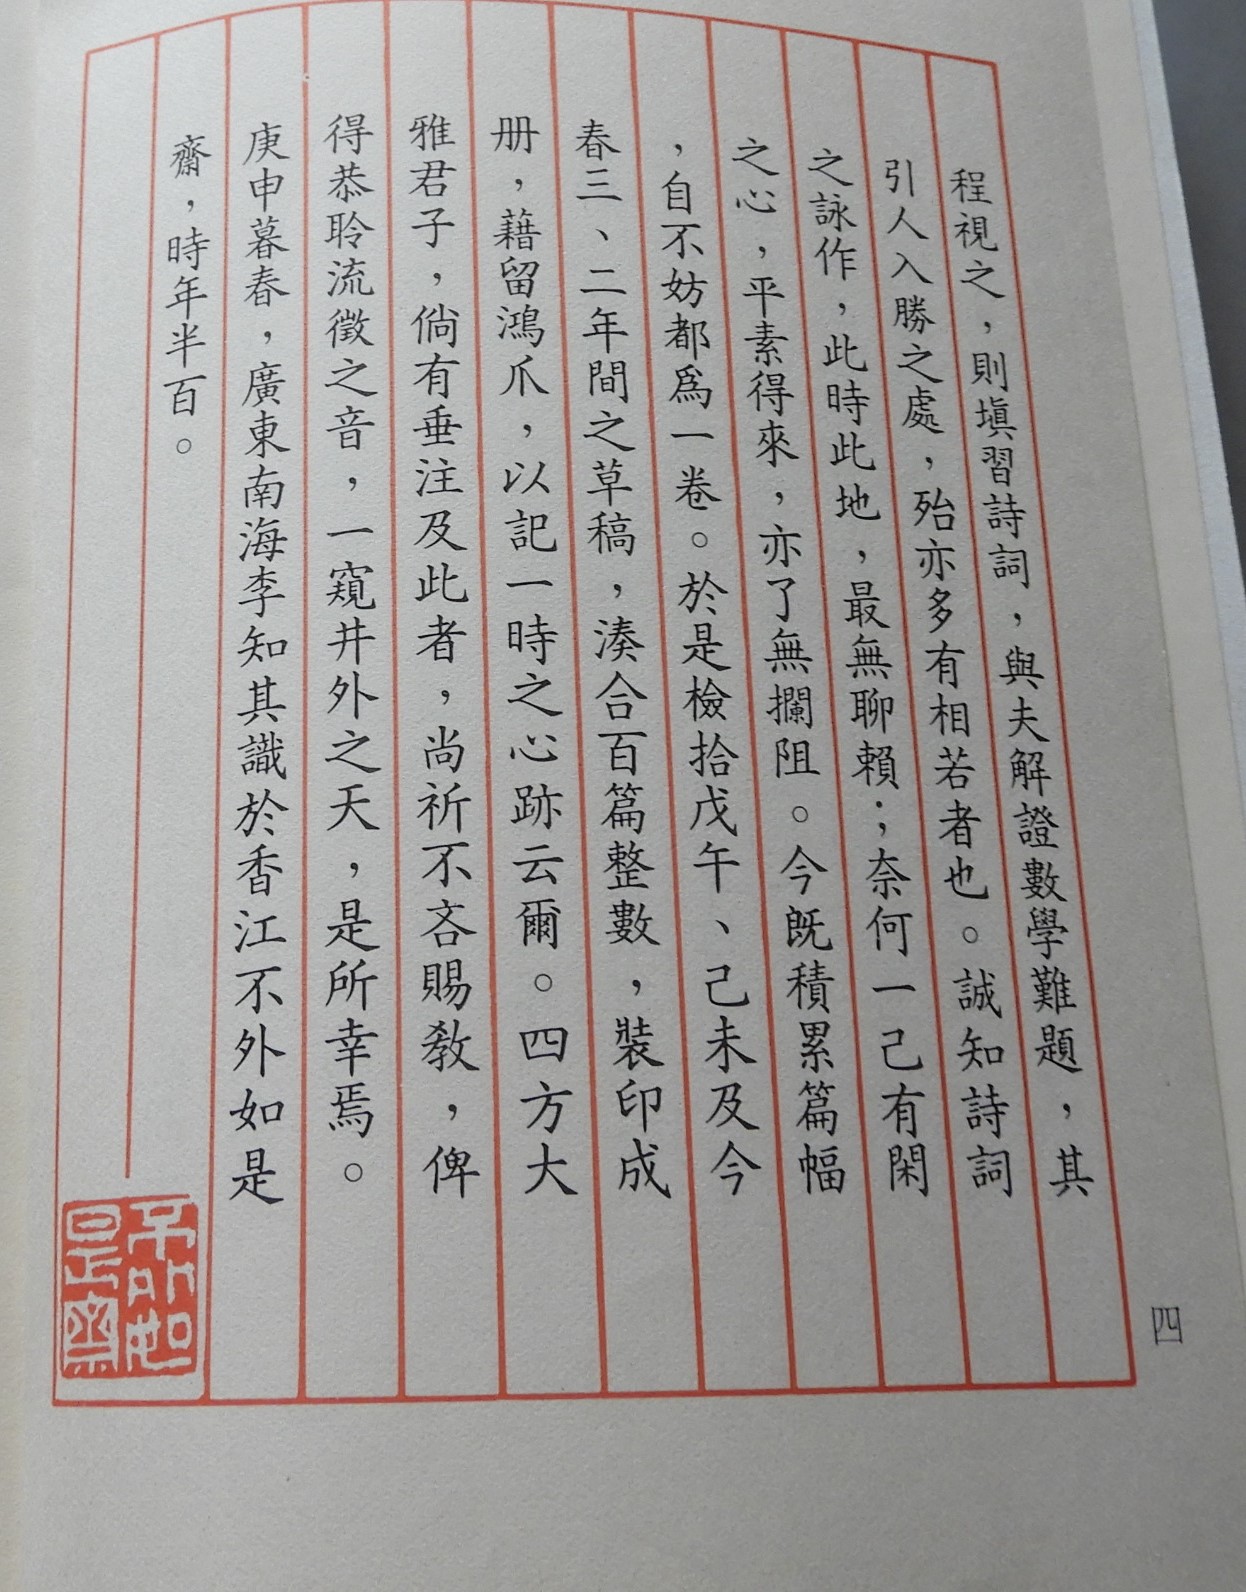 程視之，則塡習詩詞，與夫解證數學難題，其
引人入勝之處，殆亦多有相若者也。誠知詩詞
之詠作，此時此地，最無聊賴；奈何一己有閑
之心，平素得來，亦了無攔阻。今旣積累篇幅
，自不妨都爲一卷。於是檢拾戊午、己未及今
春三、二年間之草稿，湊合百篇整數，裝印成
册，藉留鴻爪，以記一時之心跡云爾。四方大
雅君子，倘有垂注及此者，尚祈不吝賜敎，俾
得恭聆流徵之音，一窺井外之天，是所幸焉。
庚申暮春，廣東南海李知其識於香江不外如是
齋，時年半百。
不外如
是齋
四